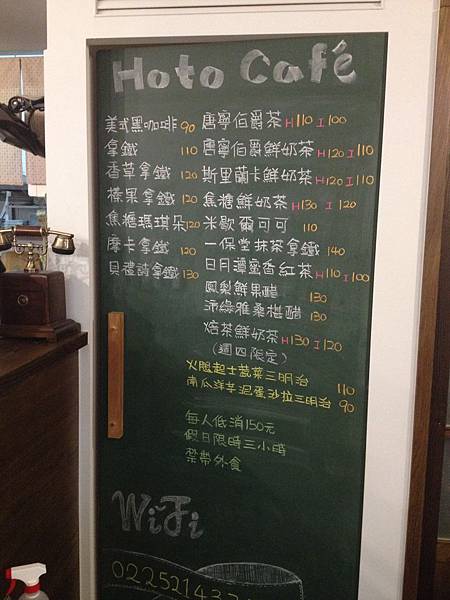 Hoto Café
美式黑咖啡 90
拿鐵 110
香草拿鐵 120
榛果拿鐵 120
焦糖瑪琪朵 120
摩卡拿鐵 120
貝禮詩拿鐵 130
唐寧伯爵茶 H110 I100
唐寧伯爵鮮奶茶 H120 I110
斯里蘭卡鮮奶茶 H120 I110
焦糖鮮奶茶 H130 I120
米歇爾可可 110
一保堂抹茶拿鐵 140
日月潭蜜香紅茶 H110 I100
鳳梨鮮果醋 130
沛綠雅桑椹醋 130
焙茶鮮奶茶 H130 I120
(週四限定)
火腿起士蔬菜三明治 110
南瓜洋芋泥蛋沙拉三明治 90
每人低消150元
假日限時三小時
禁帶外食
WiFi